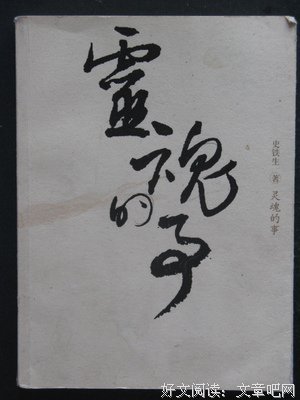 靈魂的事
史铁生 著 灵魂的事
好文阅读：文章吧网